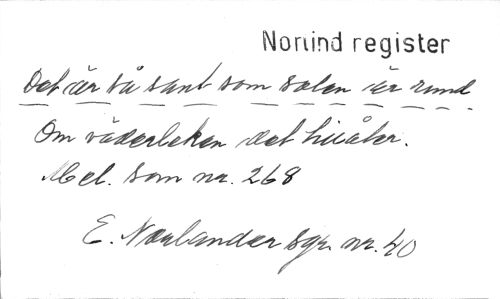 Norlind register
Det är så sant som solen är rund
Om väderleken det tillåter.
Mel. som nr. 268
E. Norlander sgr. nr. 40